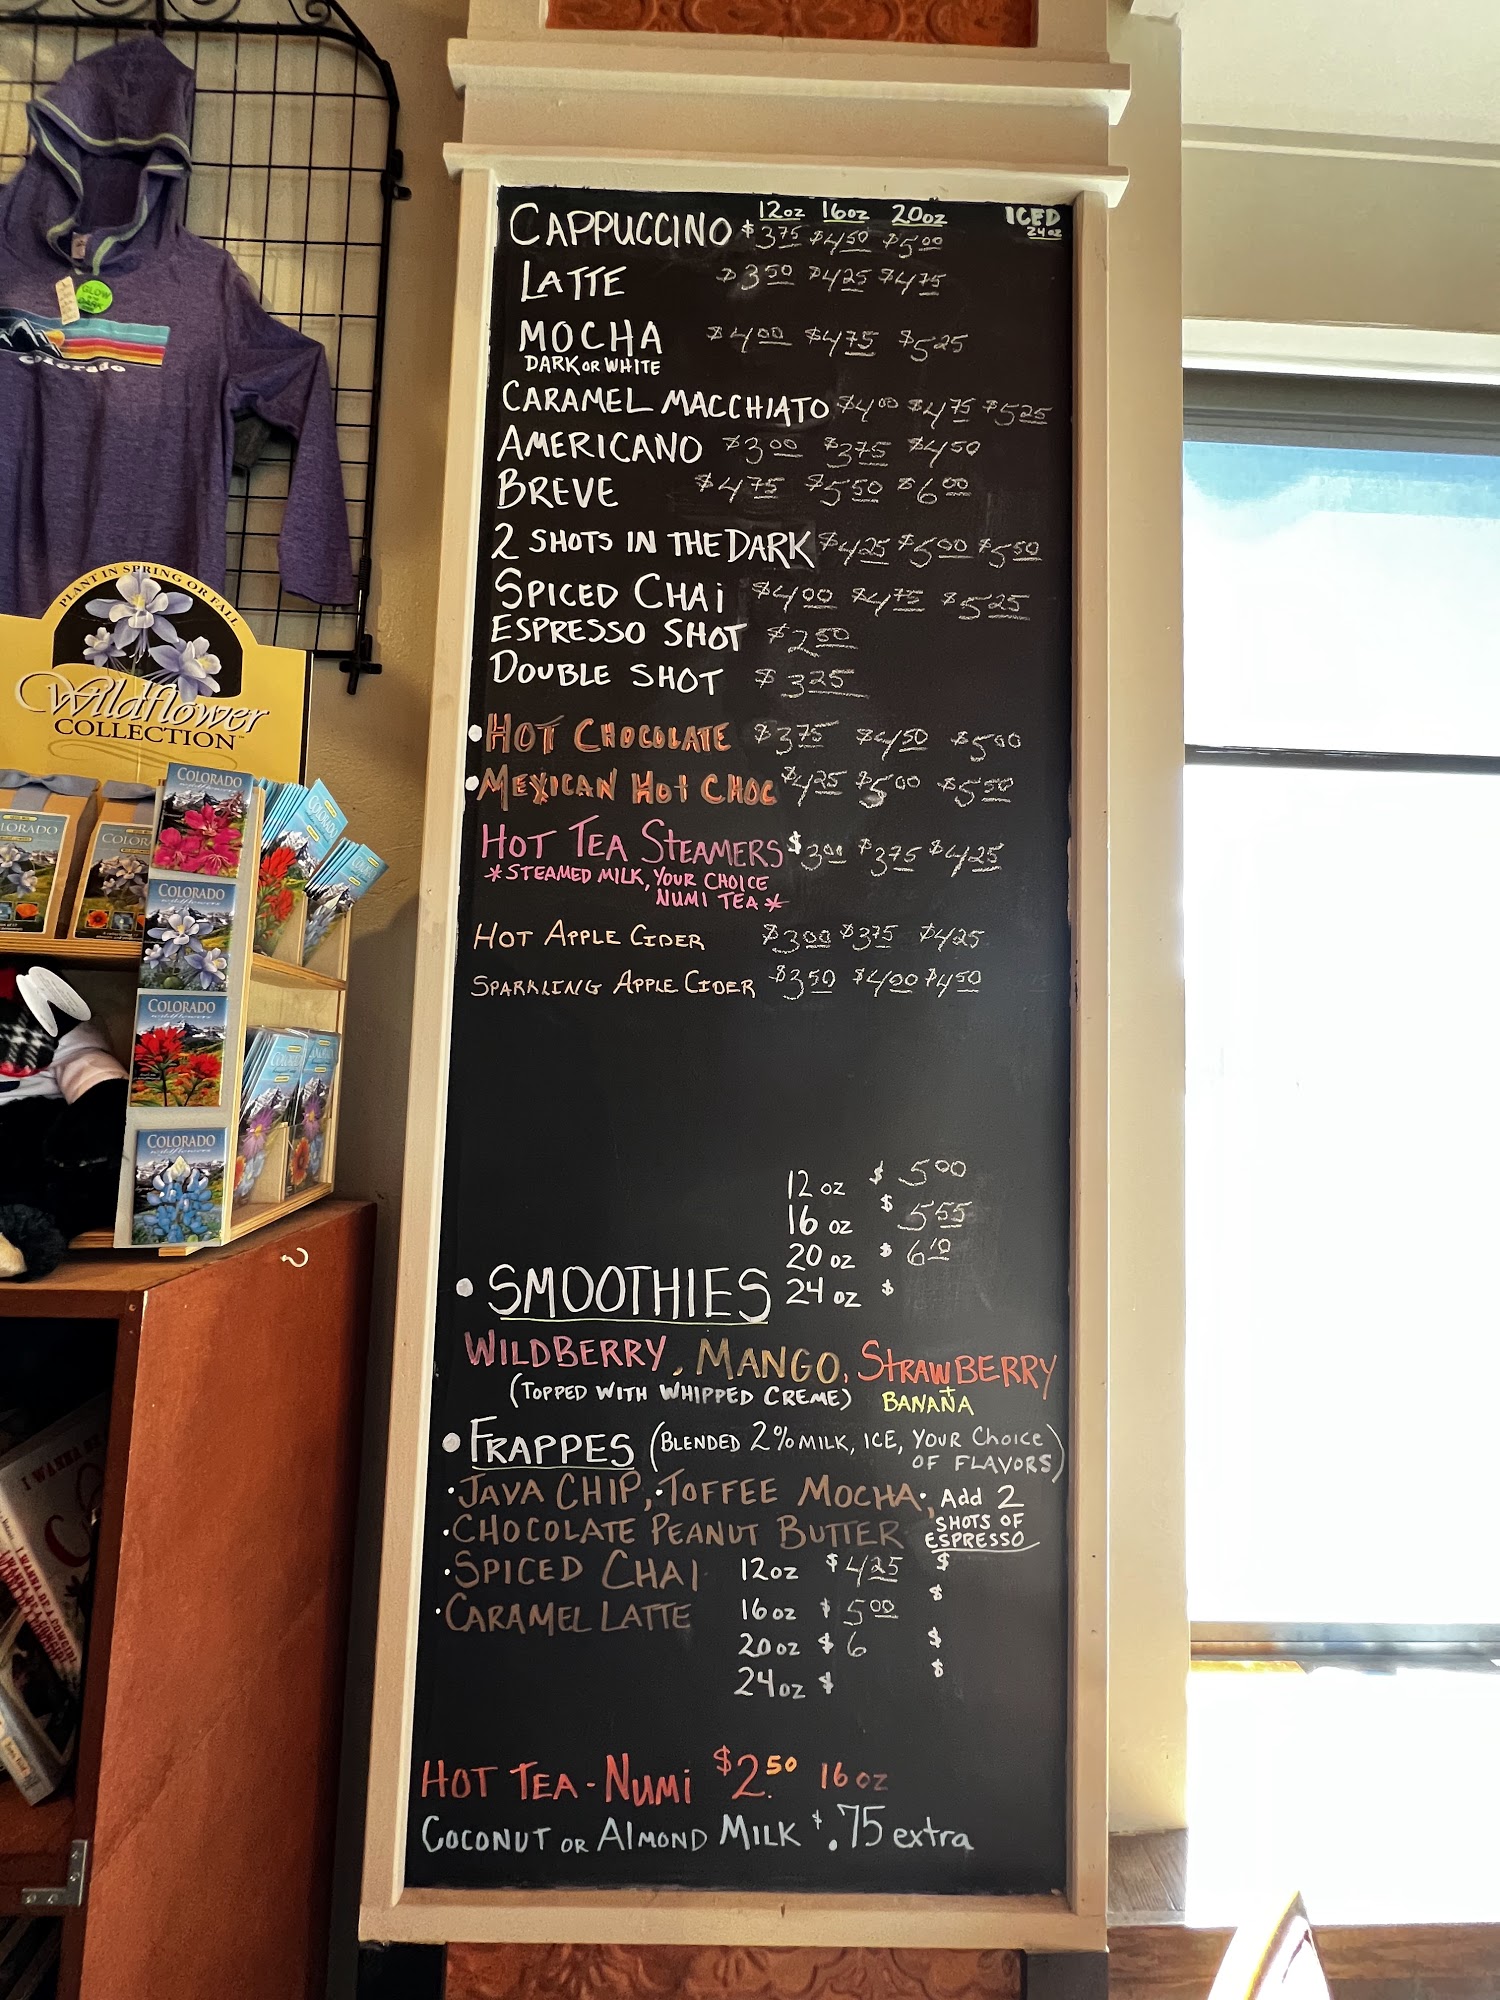 12oz 16oz 20oz ICED
24oz
CAPPUCCINO $3.75 $4.50 $5.00
LATTE $3.50 $4.25 $4.75
MOCHA $4.00 $4.75 $5.25
DARK OR WHITE
CARAMEL MACCHIATO $4.00 $4.75 $5.25
AMERICANO $3.00 $3.75 $4.50
BREVE $4.75 $5.50 $6.00
2 SHOTS IN THE DARK $4.25 $5.00 $5.50
SPICED CHAi $4.00 $4.75 $5.25
ESPRESSO SHOT $2.50
DOUBLE SHOT $3.25
• HOT CHOCOLATE $3.75 $4.50 $5.00
• MEXICAN HOT CHOC $4.25 $5.00 $5.50
HOT TEA STEAMERS $3.00 $3.75 $4.25
*STEAMED MILK, YOUR CHOICE
NUMI TEA*
HOT APPLE CIDER $3.00 $3.75 $4.25
SPARKLING APPLE CIDER $3.50 $4.00 $4.50
12 oz $ 5.00
16 oz $ 5.55
20 oz $ 6.10
• SMOOTHIES 24 oz $
WILDBERRY, MANGO, STRAWBERRY
(TOPPED WITH WHIPPED CREME) + BANAÑA
• FRAPPES (BLENDED 2% MILK, ICE, YOUR CHOICE
OF FLAVORS)
• JAVA CHIP, • TOFFEE MOCHA •, Add 2
SHOTS OF
• CHOCOLATE PEANUT BUTTER ESPRESSO
• SPICED CHAI 12oz $4.25 $
• CARAMEL LATTE 16oz $ 5.00 $
20oz $ 6 $
24oz $ $
HOT TEA - NUMi $2.50 16 oz
COCONUT OR AlMOND MILK $.75 extra
GLOW
IN THE
DARK
Colorado
PLANT IN SPRING OR FALL
Wildflower
COLLECTION™
COLORADO
COLORADO
COLORADO
COLORADO
wildflowers
COLORADO
wildflowers
COLORADO
wildflowers
I WANNA BE